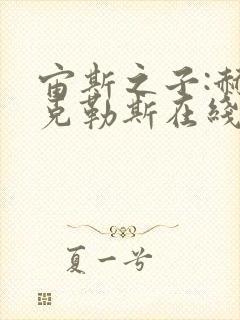 宙斯之子:赫
克勒斯在线
夏一兮